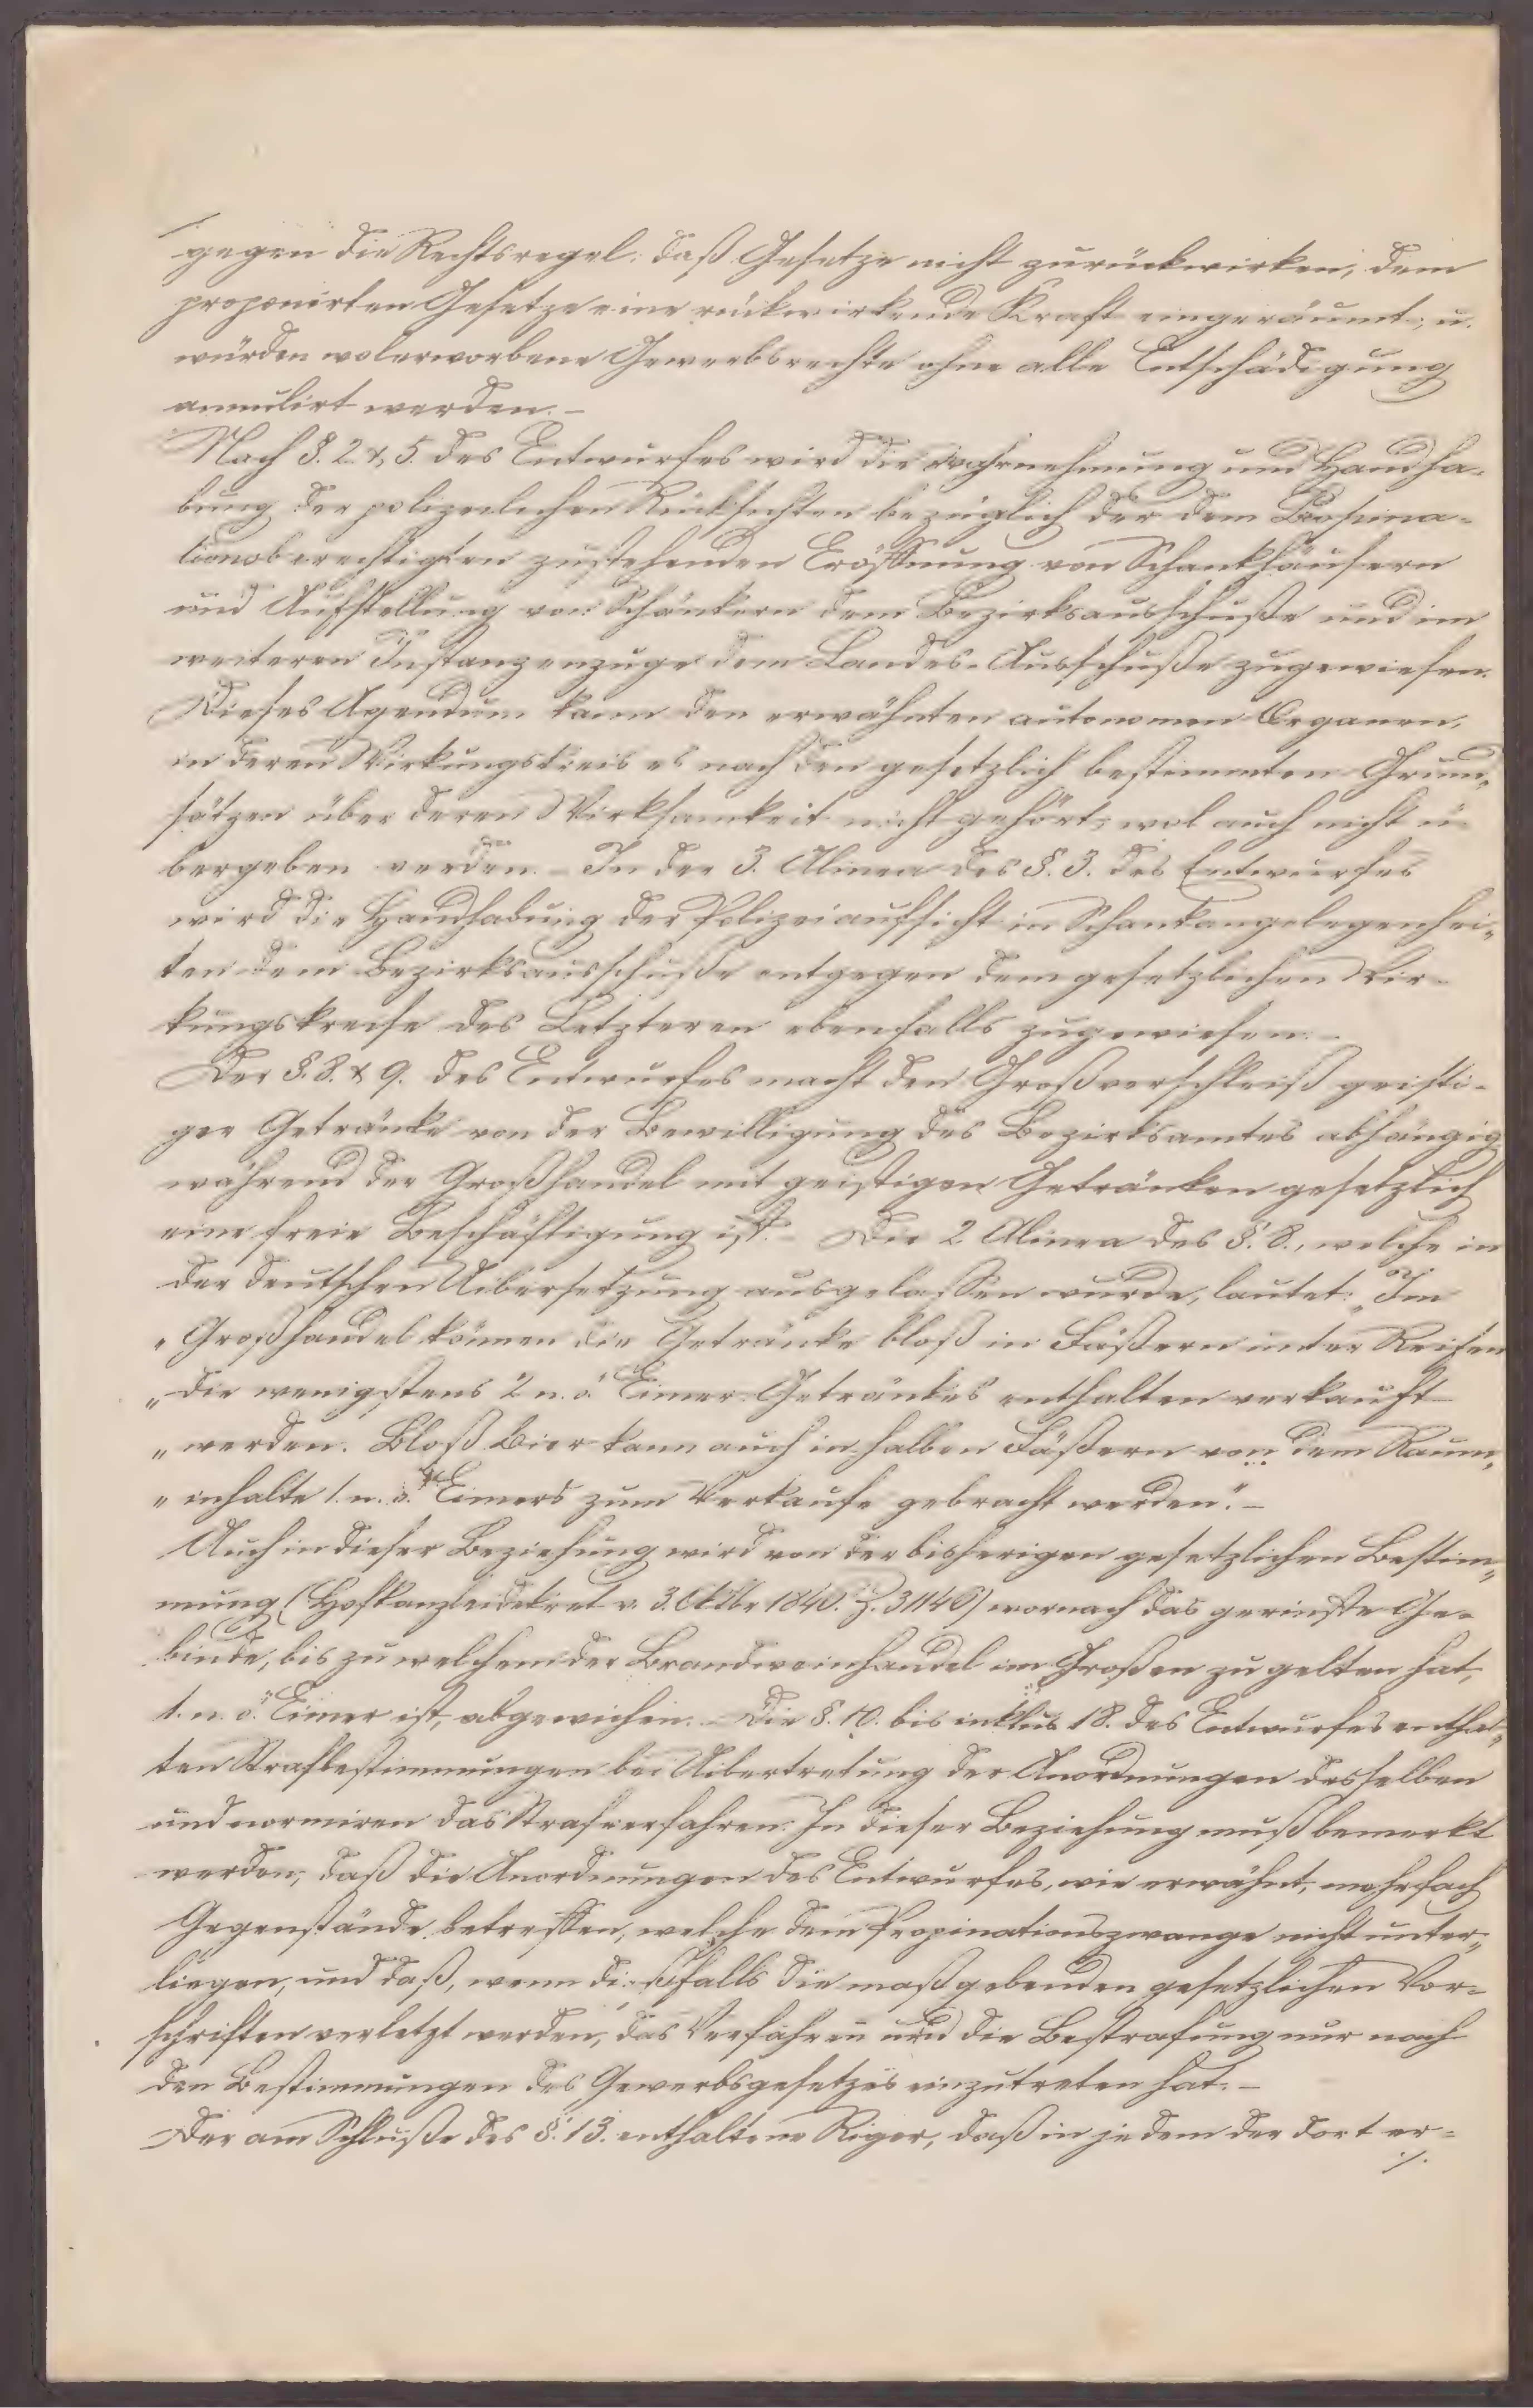 gegen die Rechtsregel: daß Gesetze nicht zurückwirken, dem
proponirten Gesetze eine rückwirkende Kraft eingeräumt, u.
würden wolerworbene Gewerbsrechte ohne alle Entschädigung
annulirt werden. –
Nach §. 2. & 5. des Entwurfes wird die Wahrnehmung und Handha-
bung der polizeilichen Rücksichten bezüglich der dem Propina-
tionsberechtigten zustehenden Eröffnung von Schankhäusern
und Aufstellung von Schänkern dem Bezirksausschuße und im
weiteren Instanzenzuge dem Landes-Ausschuße zugewiesen.
Dieses Agendum kann den erwähnten autonomen Organen,
in deren Wirkungskreis es nach den gesetzlich bestimmten Grund-
sätzen über deren Wirksamkeit nicht gehört, wol auch nicht ü-
bergeben werden. – In der 3. Alinea des §. 3. des Entwurfes
wird die Handhabung der Polizeiaufsicht in Schankangelegenhei-
ten dem Bezirksausschuße entgegen dem gesetzlichen Wir-
kungskreise des Letzteren ebenfalls zugewiesen. –
Der §. 8. & 9. des Entwurfes macht den Großverschleiß geisti-
ger Getränke von der Bewilligung des Bezirksamtes abhängig
während der Großhandel mit geistigen Getränken gesetzlich
eine freie Beschäftigung ist. – Die 2 Alinea des §. 8., welche in
der deutschen Uibersetzung ausgelassen wurde, lautet: „Im
„Großhandel können die Getränke bloß in Fäßern unter Reifen
„die wenigstens 2 n. ö. Eimer Getränkes enthalten verkauft
„werden. Bloß Bier kann auch in halben Fäßern von dem Raum-
„inhalte 1. n. ö. Eimers zum Verkaufe gebracht werden." –
Auch in dieser Beziehung wird von der bisherigen gesetzlichen Bestim-
mung (Hofkanzleidekret v. 3. Oktbr 1840. Z. 31140) wornach das gerinste Ge-
binde, bis zu welchem der Brandweinhandel im Großen zu gelten hat,
1. n. ö. Eimer ist, abgewichen. – Die §. 10. bis inklus 18. des Entwurfes enthal-
ten Strafbestimmungen bei Uibertretung der Anordnungen desselben
und normiren das Strafverfahren. In dieser Beziehung muß bemerkt
werden, daß die Anordnungen des Entwurfes, wie erwähnt, mehrfach
Gegenstände betreffen, welche dem Propinationszwange nicht unter-
liegen, und daß, wenn dießfalls die maßgebenden gesetzlichen Vor-
schriften verletzt werden, das Verfahren und die Bestrafung nur nach
den Bestimmungen des Gewerbsgesetzes einzutreten hat. –
Der am Schluße des §. 13. enthaltene Rigor, daß in jedem der dort er-
./.